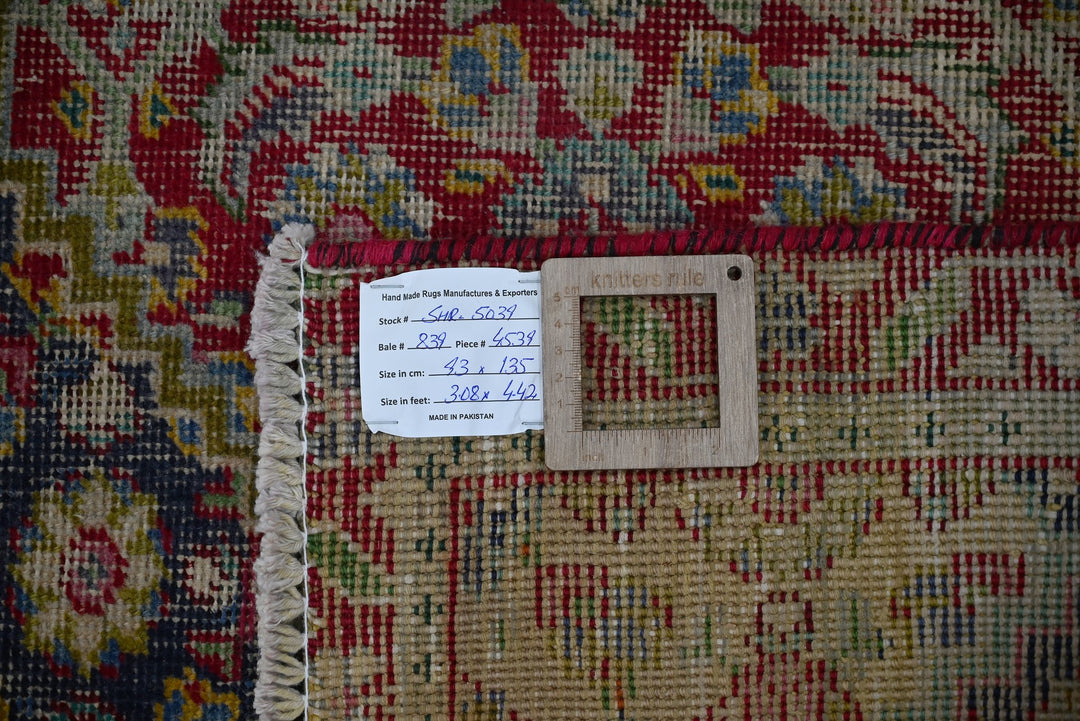 Hand Made Rugs Manufactures & Exporters
Stock # SHR- 5039
Bale # 839 Piece # 4539
Size in cm: 93 x 135
Size in feet: 3.08 x 4.42
MADE IN PAKISTAN
knitters rule
5 cm
4
3
2
1
inch 1 2